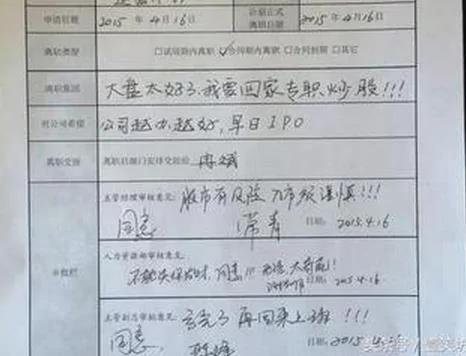 申请日期 2015年4月16 计划正式离职日期 2015年4月16
离职类型 □试用期内离职 ☑合同期内离职 □合同到期 □其它
离职原因 大盘太好了、我要回家专职炒股!!!
对公司希望 公司越办越好,早日IPO
离职交接 离职后部门安排交接给 冉斌
主管经理审核意见: 股市有风险 入市须谨慎!!!
同意 常青 日期: 2015.4.16
人力资源部审核意见:
同意!!! 日期: 2015 4.16
审批栏
主管副总审核意见: 亏完了 再回来上班!!!
同意 日期: 2015.4.16